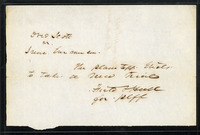 Dred Scott
vs.
Irene Emerson
The plaintiff elects
to take a
Field & Hall
for plff